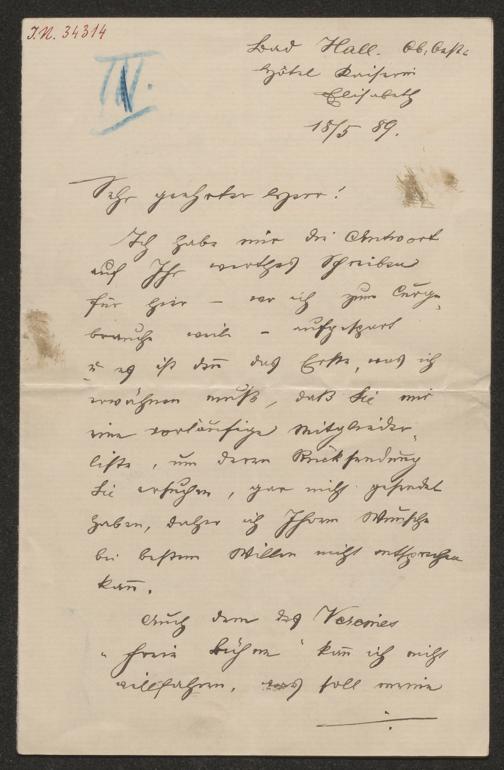 I.N. 34314
IV.
Bad Hall. Ob. Oest.
Hôtel Kaiserin
Elisabeth
18/5 89.
Sehr geehrter Herr!
Ich habe mir die Antwort
auf Ihr werthes Schreiben
für hier – wo ich zum Curge-
brauch weile – aufgespart
u es ist den̅ das Erste, was ich
erwähnen muß, daß Sie mir
eine vorläufige Mitglieder-
liste, um deren Rücksendung
Sie ersuchen, gar nicht gesendet
haben, daher ich Ihrem Wunsche
bei bestem Willen nicht entsprechen
kan̅.
Auch dem des Vereines
„freie Bühne" kan̅ ich nicht
willfahren. was soll meine